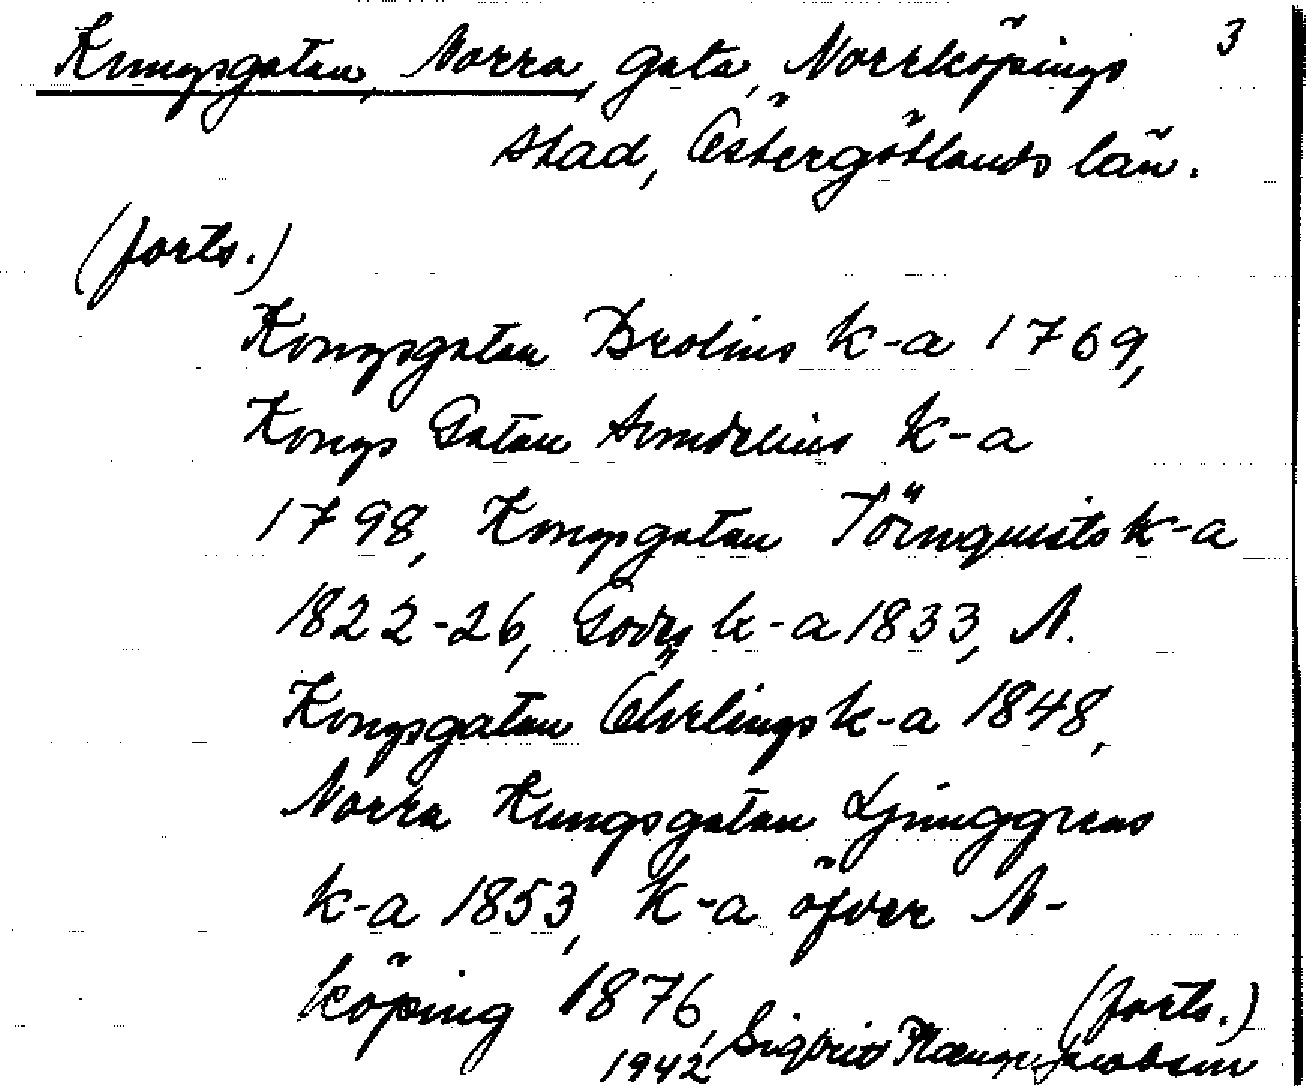 Kungsgatan, Norra, gata, Norrköpings 3
stad, Östergötlands län.
(forts.)
Kongsgatan Brolins k-a 1769,
Kongs Gatan Arndelius k-a
1798, Kongsgatan Törnquists k-a
1822-26, Godvs k-a 1833, N.
Kongsgatan Öhrlings k-a 1848,
Norra Kungsgatan Ljunggrens
k-a 1853, K-a öfver N-
köping 1876, (forts.)
1942 Sigbrit Jacobson